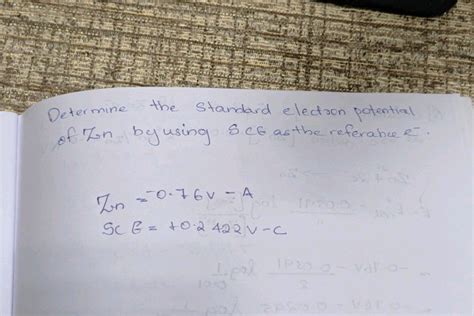 Determine the standard electron potential
of Zn by using SCE as the referance e⁻.
Zn = -0.76V - A
SCE = +0.2422V - C